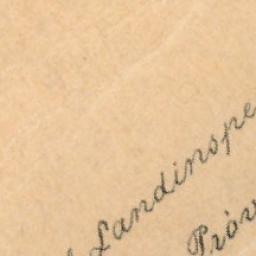 Landinspe
Próv